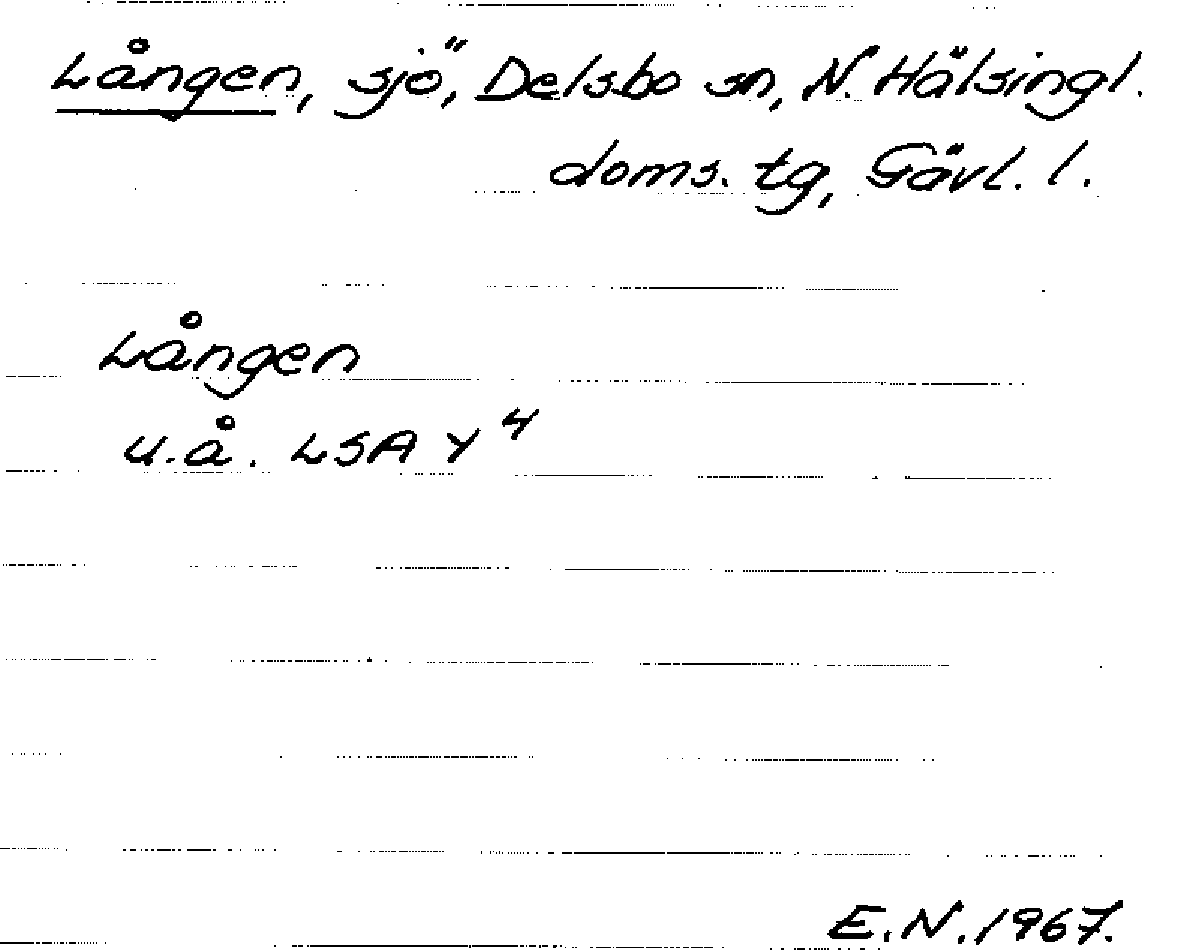 Lången, sjö, Delsbo sn, N. Hälsingl.
doms. tg, Gävl. l.
Lången
u.å. LSA Y⁴
E.N. 1967.